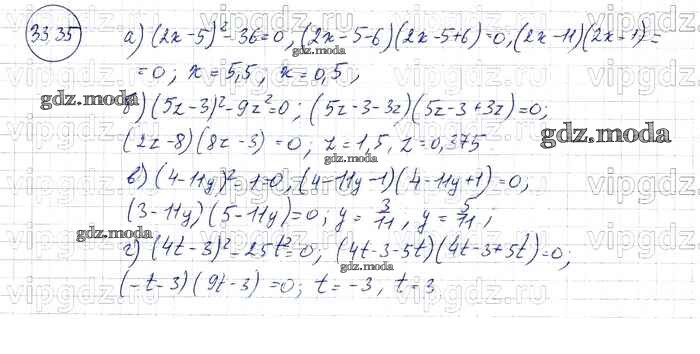 33.35
а) (2x-5)²-36=0, (2x-5-6)(2x-5+6)=0, (2x-11)(2x+1)=
=0; x=5,5, x=0,5;
б) (5z-3)²-9z²=0; (5z-3-3z)(5z-3+3z)=0;
(2z-8)(8z-3)=0; z=1,5, z=0,375
в) (4-11y)²-1=0, (4-11y-1)(4-11y+1)=0,
(3-11y)(5-11y)=0; y=3/11, y=5/11;
г) (4t-3)²-25t²=0, (4t-3-5t)(4t-3+5t)=0;
(-t-3)(9t-3)=0; t=-3, t=3
gdz.moda
gdz.moda
gdz.moda
gdz.moda
gdz.moda
gdz.moda
vipgdz.ru